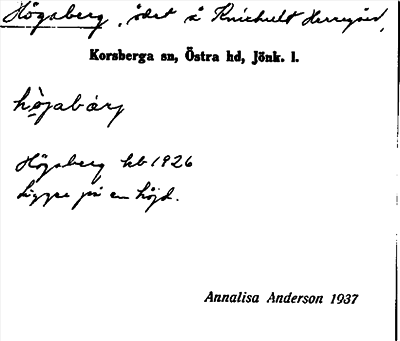 Högaberg, ödet å Knickult Herrgård,
Korsberga sn, Östra hd, Jönk. l.
hògabærj
Högaberg hb 1926
Ligger på en höjd.
Annalisa Anderson 1937